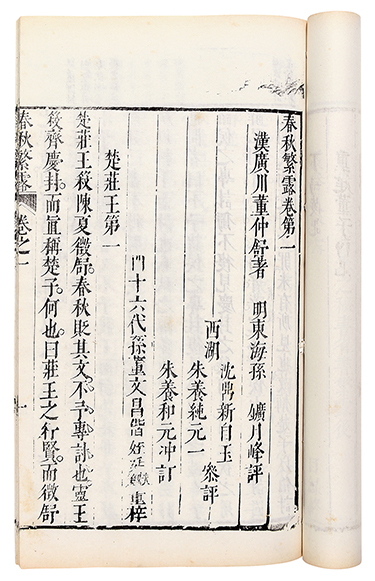 春秋繁露卷第一
漢廣川董仲舒著 明東海孫 鑛月峰評
沈鼎新自玉
西湖 朱養純元一 叅評
朱養和元冲訂
十六代孫董文昌偕姪 重梓
楚莊王第一
楚莊王殺陳夏徵舒。春秋貶其文。不予專討也。靈王
殺齊慶封。而直稱楚子。何也。曰莊王之行賢。而徵舒
春秋繁露 卷之一 一